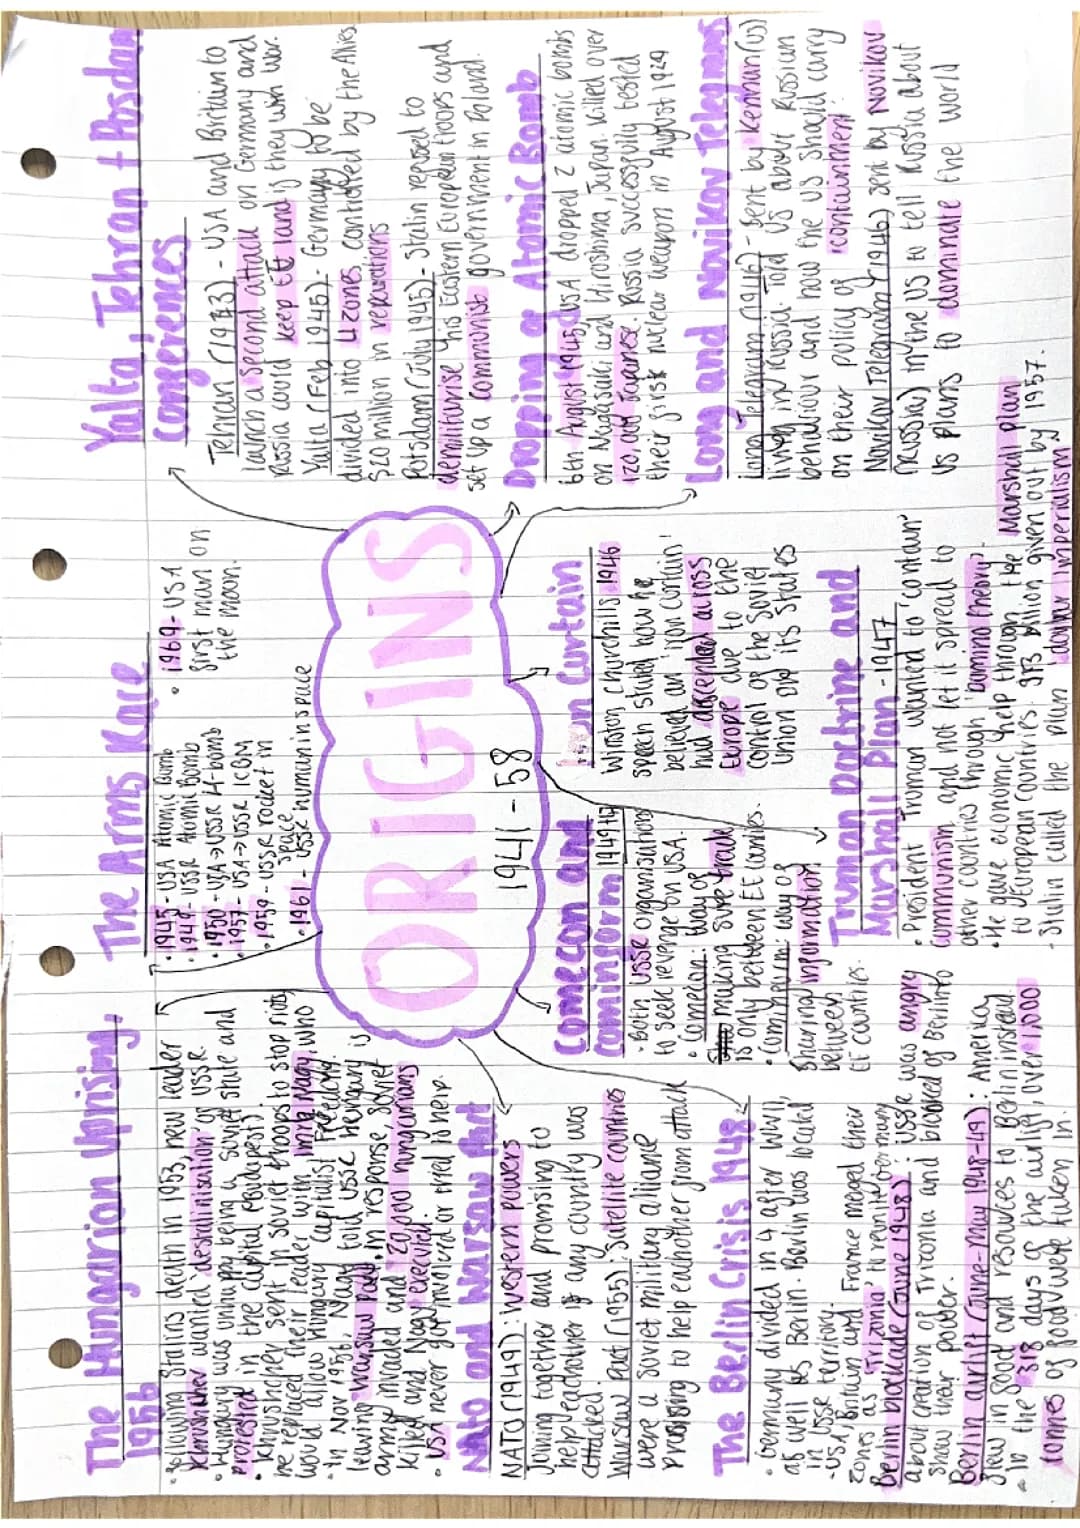 The Hungarian Uprising,
1956
• Following Stalins death in 1953, new leader
Krushchev wanted 'destalinisation' of USSR.
• Hungary was unhappy being a soviet state and
protested in the capital (Budapest).
• Krhushchev sent in soviet troops to stop riots,
he replaced their leader with Imre Nagy, who
would allow Hungary capitalist freedom.
• In Nov 1956, Nagy told USSR Hungary is
leaving Warsaw Pact. In response, Soviet
army invaded and 20,000 Hungarians
killed and Nagy executed.
• USA never got involved or tried to help.
NATO and Warsaw Pact
NATO (1949): Western powers
joining together and promising to
help eachother if any country was
attacked.
Warsaw Pact (1955): Satellite countries
were a soviet military alliance
promising to help eachother from attack
The Berlin Crisis 1948
• Germany divided in 4 after WWII,
as well as Berlin. Berlin was located
in USSR territory.
- USA, Britain and France merged their
zones as 'Trizonia' to reunite Germany
Berlin blockade (June 1948): USSR was angry
about creation of Trizonia and blocked of Berlin to
show their power.
Berlin airlift (June-May 1948-49): America
flew in food and resources to Berlin instead.
• In the 318 days of the airlift, over 1,000
tonnes of food were taken in.
The Arms Race
• 1945 - USA Atomic Bomb
• 1949 - USSR Atomic Bomb
• 1950 - USA → USSR H-bomb
• 1957 - USA → USSR ICBM
• 1959 - USSR rocket in
space
• 1961 - USSR human in space
• 1969 - USA
first man on
the moon.
ORIGINS
1941 - 58
Comecon and
Cominform 1949
• Both USSR organisations
to seek revenge on USA.
• Comecon: way of
making sure trade
is only between EE countries.
• Cominform: way of
sharing information
between
EE countries.
Iron Curtain
Winston churchills 1946
speech stated how he
believed an iron curtain'
had descended across
Europe due to the
control of the Soviet
Union and its states
Truman Doctrine and
Marshall Plan - 1947
• President Truman wanted to 'contain'
communism and not let it spread to
other countries through 'Domino theory'.
• He gave economic help through the Marshall plan
to European countries. $13 billion given out by 1957.
- Stalin called the plan 'dollar imperialism
Yalta, Tehran + Posdam
Conferences
Tehran (1943) - USA and Britain to
launch a second attack on Germany and
Russia could keep EE land if they win war.
Yalta (Feb 1945) - Germany to be
divided into 4 zones, controlled by the Allies.
$20 million in reparations
Potsdam (July 1945) - Stalin refused to
demilitarise his Eastern European troops and
set up a communist government in Poland.
Droping a Atomic Bomb
6th August 1945, USA dropped 2 atomic bombs
on Nagasaki and Hiroshima, Japan. Killed over
120,000 Japanese. Russia successfully tested
their first nuclear weapon in August 1949
Long and Novikov Telegrams
Long Telegram (1946) - Sent by Kennan (US)
living in Russia. Told US about Russian
behaviour and how the US should carry
on their policy of 'containment'
Novikov Telegram (1946) sent by Novikov
(Russia) in the US to tell Russia about
US plans to dominate the world